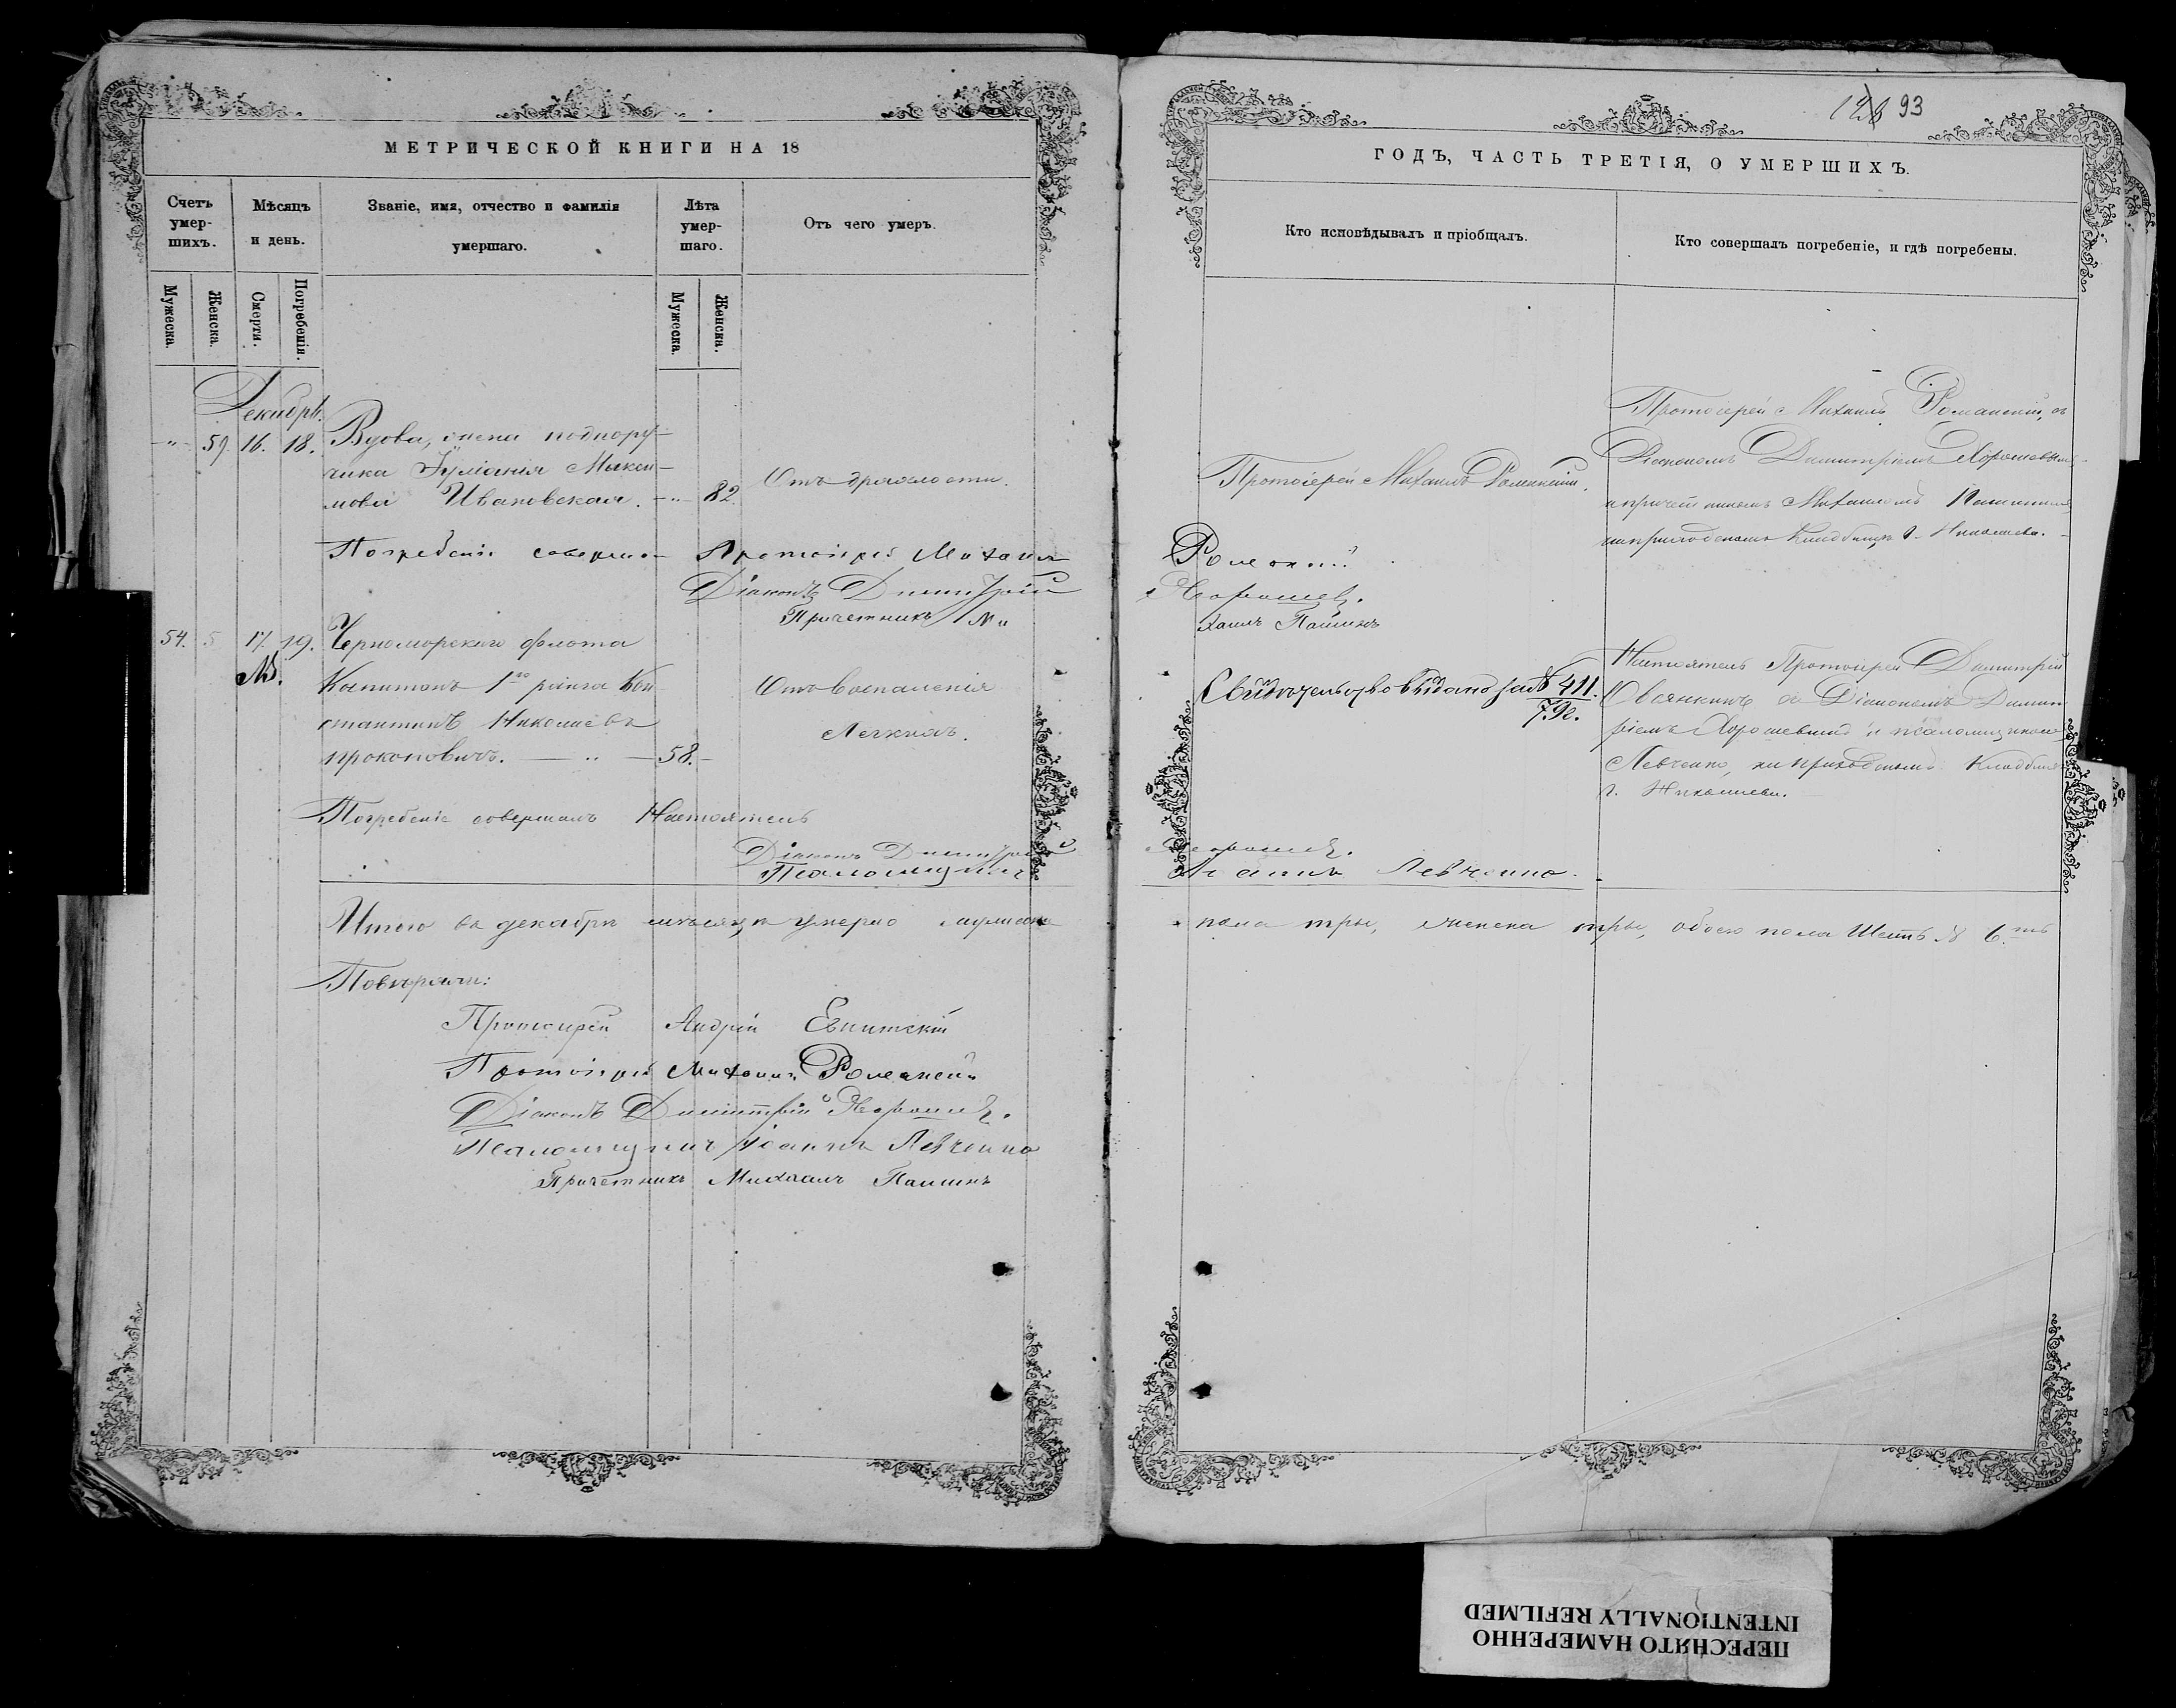 МЕТРИЧЕСКОЙ КНИГИ НА 18
Счетъ умер-шихъ.
Мѣсяцъ и день.
Званіе, имя, отчество и фамилія умершаго.
Лѣта умер-шаго.
Отъ чего умеръ.
Мужеска.
Женска.
Смерти.
Погребенія.
Мужеска.
Женска.
Декабрь.
59. 16. 18. Вдова, жена подпору-
чика
мова Ивановская. 82
Отъ дряхлости.
Погребеніе соверш. Протоіерей Михаил
Діаконъ Димитрій
Причетникъ Ми
54. 17. 19. Черноморскаго флота
Капитанъ 1го ранга Кон
стантинъ Николаевъ
Прокоповичъ. 58.
Отъ воспаленія
Легкихъ.
Погребеніе совершалъ Настоятель
Діаконъ Димитрій
Псаломщикъ
Итого въ декабрѣ мѣсяцѣ умерло мужеска
Повѣряли:
Протоіерей Андрей
Протоіерей Михаилъ Романскій
Діаконъ Димитрій Хорошев.
Псаломщикъ Іоаннъ Левченко
Причетникъ Михаилъ Пашинъ
93
ГОДЪ, ЧАСТЬ ТРЕТІЯ, О УМЕРШИХЪ.
Кто исповѣдывалъ и пріобщалъ.
Кто совершалъ погребеніе, и гдѣ погребены.
Протоіерей Михаилъ Романскій.
Протоіерей Михаилъ Романскій, съ
Діакономъ Димитріемъ Хорошевымъ
и причетникомъ Михаиломъ Пашинымъ
на приходскомъ кладбищѣ г. Николаева.
Романскій
Хорошев.
хаилъ Пашинъ
Свидѣтельство выдано за № 411.
79г.
Настоятель Протоіерей Димитрій
съ Діакономъ Димит
ріемъ Хорошевымъ и псаломщикомъ
Левченко, на приходскомъ кладбищѣ
г. Николаева.
Хорошев.
Іоаннъ Левченко.
пола три, женска три, обоего пола шесть 6.
ПЕРЕСНЯТО НАМЕРЕННО
INTENTIONALLY REFILMED